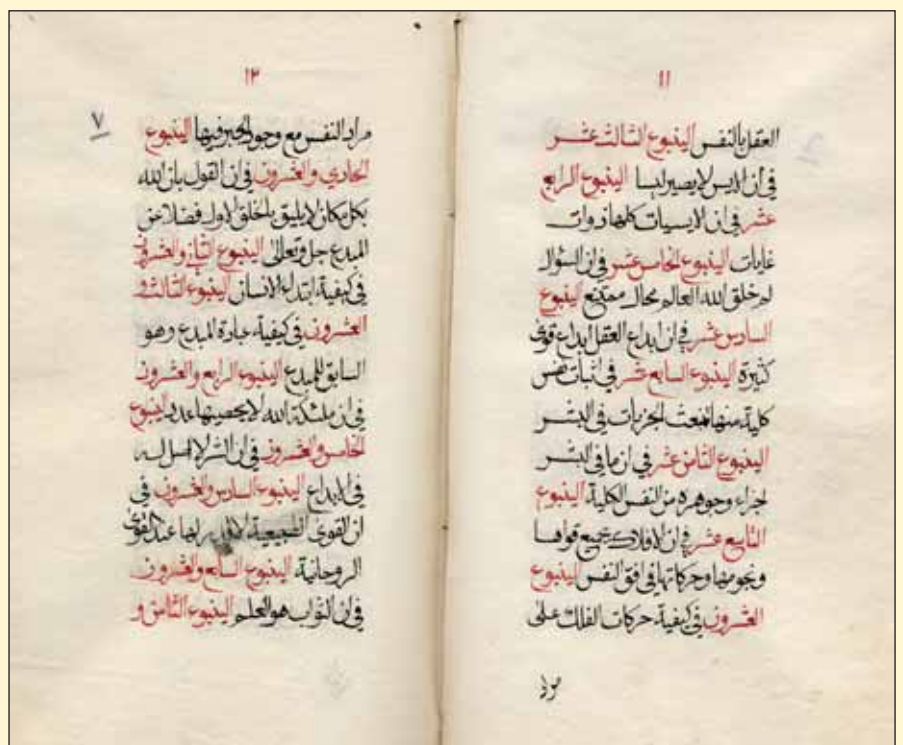 ١١
العقل بالنفس الينبوع الثالث عشر
في ان الايس لا يصير ليسا الينبوع الرابع
عشر في ان الايسيات كلها ذوات
غايات الينبوع الخامس عشر في ان السؤال
لم خلق الله العالم محال ممتنع الينبوع
السادس عشر في ان ابداع العقل ابداع قوى
كثيرة الينبوع السابع عشر في اثبات نفس
كلية منها تنبعث الجزيات في البشر
الينبوع الثامن عشر في ان ما في البشر
اجزاء وجوهره من النفس الكلية الينبوع
التاسع عشر في ان الافلاك بجميع قواها
ونجومها وحركاتها في افق النفس الينبوع
العشرون في كيفية حركات الفلك على
مراد
١٢
٧
مراد النفس مع وجود الجبر فيها الينبوع
الحادي والعشرون في ان القول بان الله
بكل مكان لا يليق بالخلق الاول فضلا عن
المبدع جل وتعالى الينبوع الثاني والعشرون
في كيفية ابتداء الانسان الينبوع الثالث و
العشرون في كيفية عبادة المبدع وهو
السابق للمبدع الينبوع الرابع والعشرون
في ان ملئكة الله لا يحصيها عدد الينبوع
الخامس والعشرون في ان الشر لا اصل له
في الابداع الينبوع السادس والعشرون في
ان القوى الطبيعية لها عند القوى
الروحانية الينبوع السابع والعشرون
في ان الثواب هو العلم الينبوع الثامن و